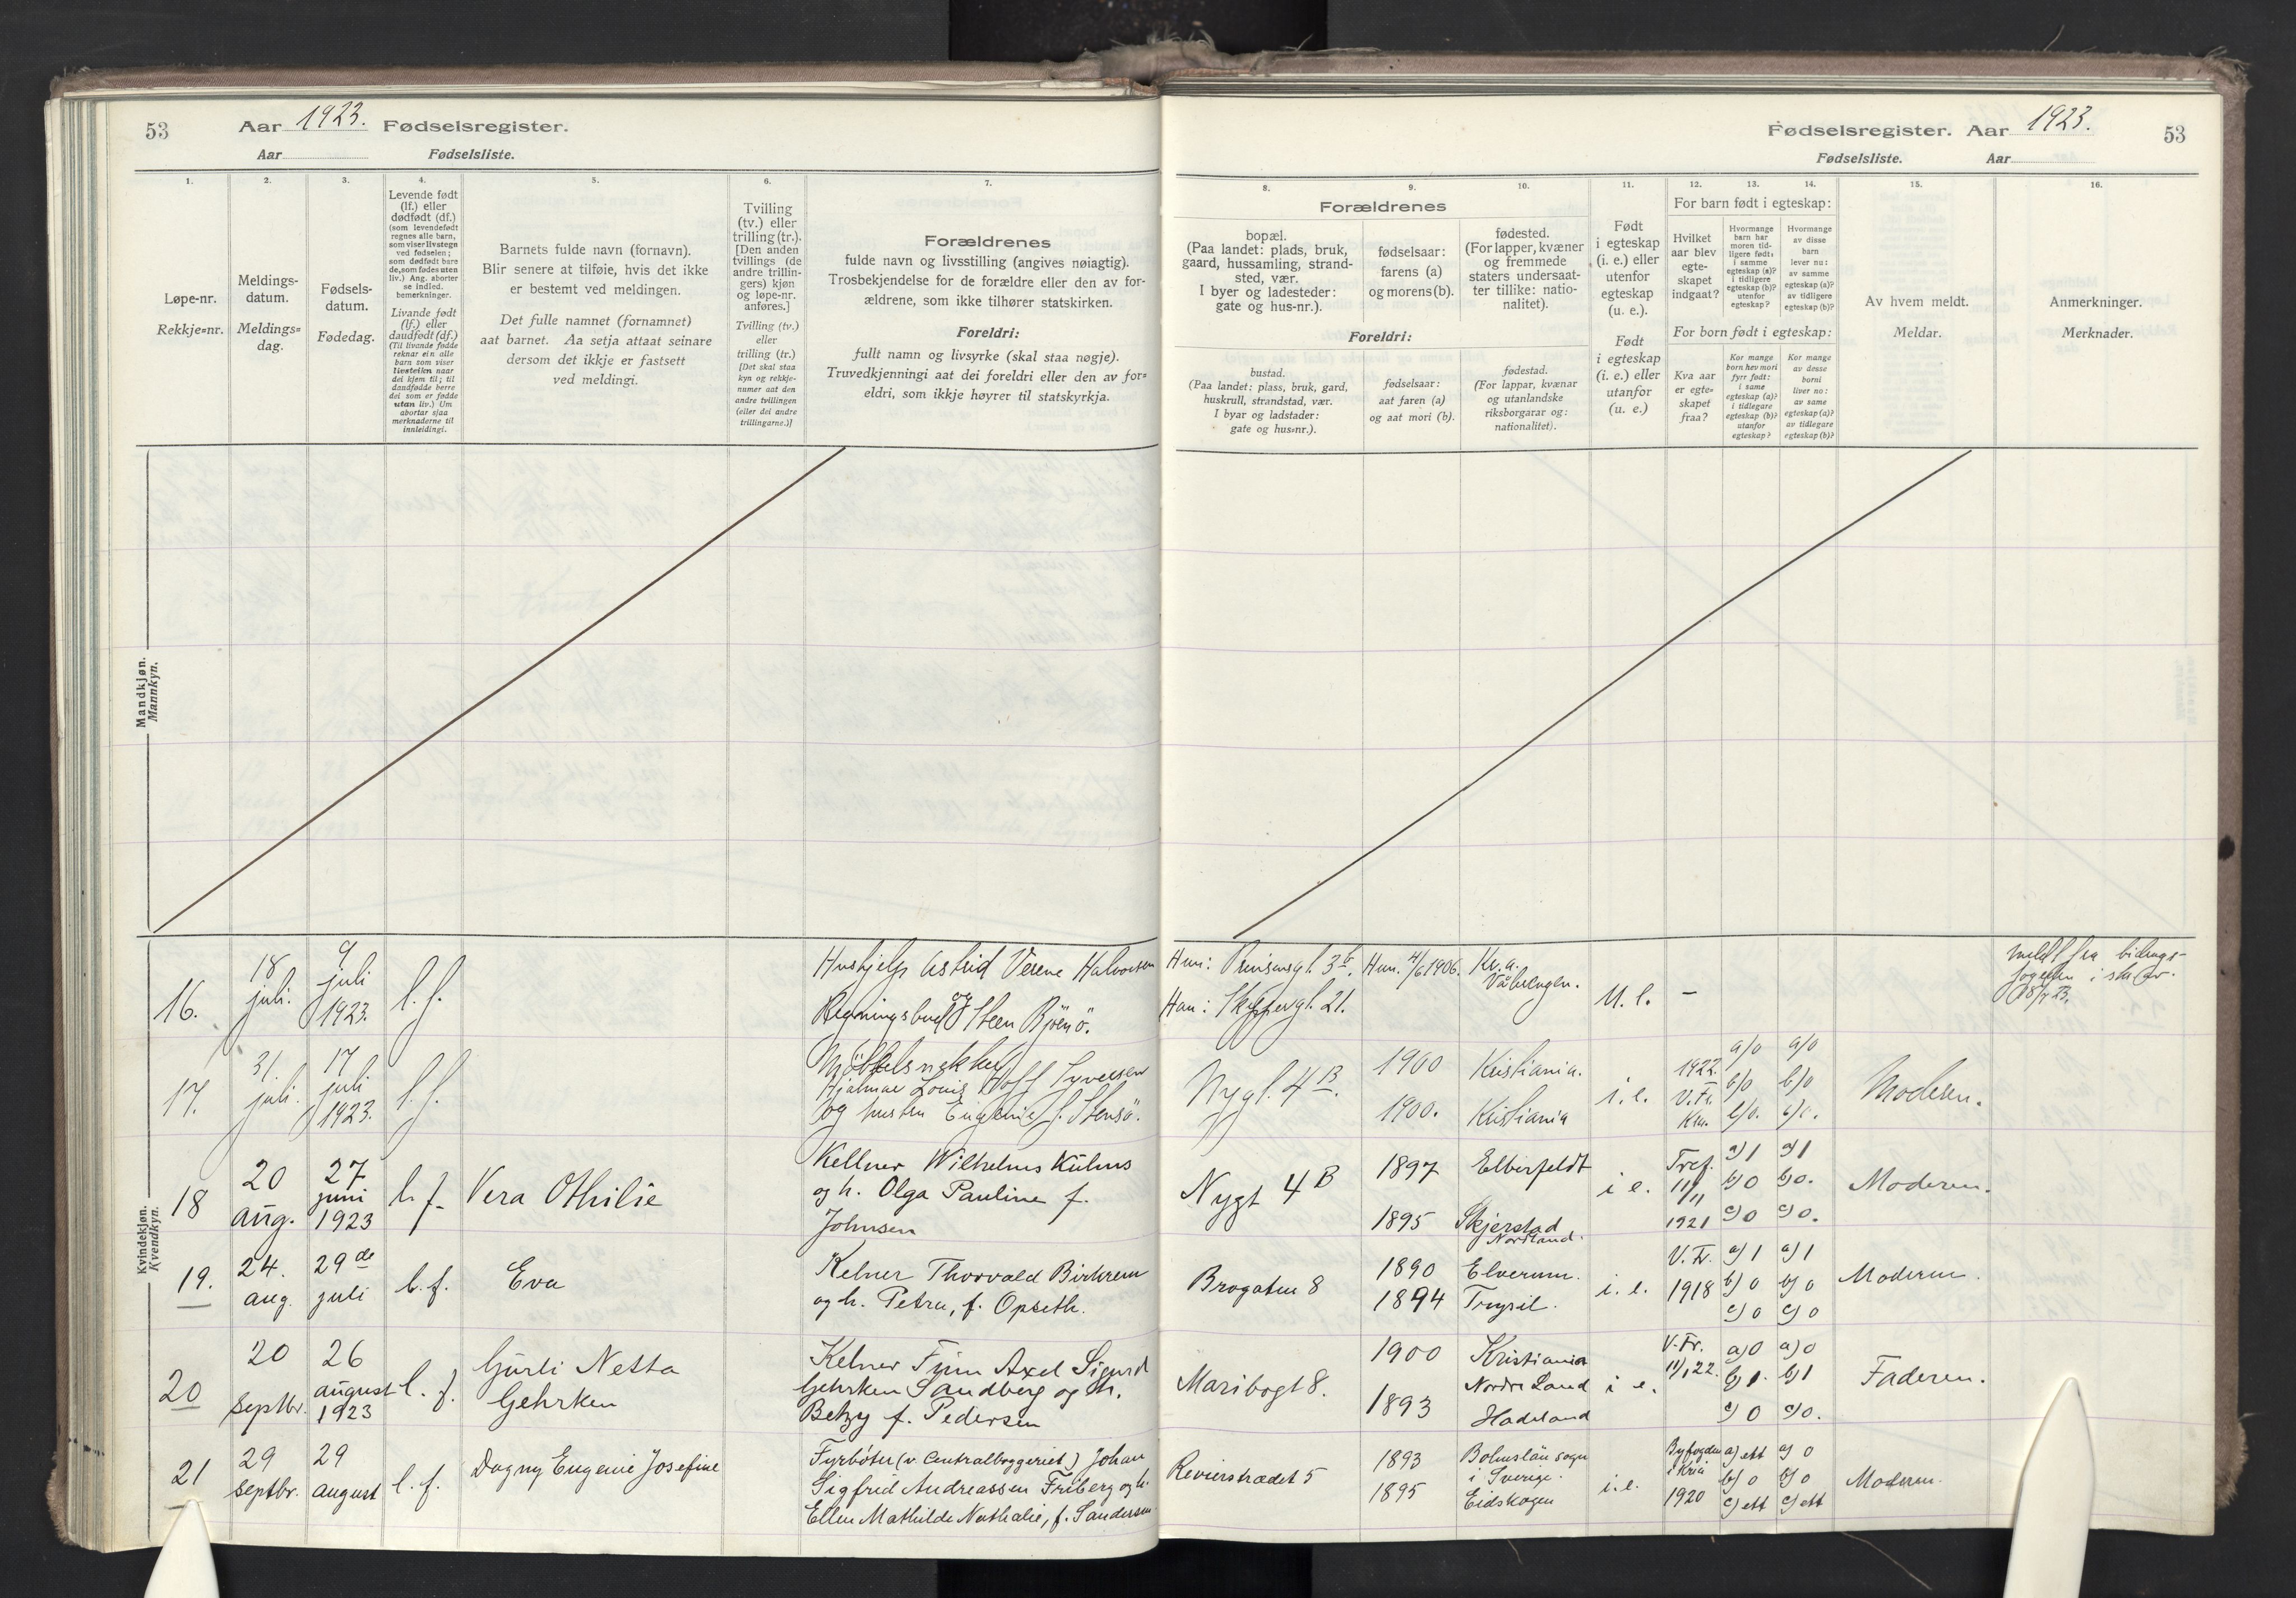 53
Aar 1923. Fødselsregister.
Aar Fødselsliste.
1.
Løpe-nr.
Rekkje=nr.
2.
Meldings-
datum.
Meldings=
dag.
3.
Fødsels-
datum.
Fødedag.
4.
Levende født
(lf.) eller
dødfødt (df.)
(som levendefødt
regnes alle barn,
som viser livstegn
ved fødselen;
som dødfødt bare
de, som fødes uten
liv.) Ang. aborter
se indled.
bemerkninger.
Livande født
(lf.) eller
daudfødt (df.)
(Til livande fødde
reknar ein alle
barn som viser
livsteikn naar
dei kjem til; til
daudfødde berre
dei som er fødde
utan liv.) Um
abortar sjaa
merknaderne til
innleidingi.
5.
Barnets fulde navn (fornavn).
Blir senere at tilføie, hvis det ikke
er bestemt ved meldingen.
Det fulle namnet (fornamnet)
aat barnet. Aa setja attaat seinare
dersom det ikkje er fastsett
ved meldingi.
6.
Tvilling
(tv.) eller
trilling (tr.).
[Den anden
tvillings (de
andre trillin-
gers) kjøn
og løpe-nr.
anføres.]
Tvilling (tv.)
eller
trilling (tr.)
[Det skal staa
kyn og rekkje-
numer aat den
andre tvillingen
(eller dei andre
trillingarne.)]
7.
Forældrenes
fulde navn og livsstilling (angives nøiagtig).
Trosbekjendelse for de forældre eller den av for-
ældrene, som ikke tilhører statskirken.
Foreldri:
fullt namn og livsyrke (skal staa nøgje).
Truvedkjenningi aat dei foreldri eller den av for=
eldri, som ikkje høyrer til statskyrkja.
Mandkjøn.
Mannkyn.
Kvindekjøn.
Kvendkyn.
16.
18
juli.
9
juli
1923.
l. f.
Hushjelp Astrid Verene Halvorsen
og
Regningsbud Steen Bjørnø.
17.
31
juli.
17
juli
1923.
l. f.
Møbelsnekker
Hjalmar Louis Hoff Syversen
og hustru Eugenie f. Stensø.
18
20
aug.
27
juni
1923
l. f.
Vera Othilie
Kellner Wilhelms Kühns
og h. Olga Pauline f.
Johnsen
19.
24.
aug.
29de
juli
l. f.
Eva
Kelner Thorvald Birkrem
og h. Petra, f. Opseth.
20
20
Septbr.
26
august
1923
l. f.
Gurli Netta
Gehrken
Kelner Finn Axel Sigurd
Gehrken Sandberg og h.
Betzy f. Pedersen
21
29
septbr.
29
august
l. f.
Dagny Eugenie Josefine
Fyrbøter (v. Centralbryggeriet) Johan
Sigfrid Andreassen Friberg og h.
Ellen Mathilde Nathalie, f. Sandersen
Fødselsregister. Aar 1923.
53
Fødselsliste. Aar
8.
Forældrenes
bopæl.
(Paa landet: plads, bruk,
gaard, hussamling, strand-
sted, vær.
I byer og ladesteder:
gate og hus-nr.).
Foreldri:
bustad.
(Paa landet: plass, bruk, gard,
huskrull, strandstad, vær.
I byar og ladstader:
gate og hus=nr.).
9.
fødselsaar:
farens (a)
og morens (b).
fødselsaar:
aat faren (a)
og aat mori (b).
10.
fødested.
(For lapper, kvæner
og fremmede
staters undersaat-
ter tillike: natio-
nalitet).
fødestad.
(For lappar, kvænar
og utanlandske
riksborgarar og:
nationalitet).
11.
Født
i egteskap
(i. e.) eller
utenfor
egteskap
(u. e.).
Født
i egteskap
(i. e.) eller
utanfor
(u. e.)
12.
13.
14.
For barn født i egteskap:
Hvilket
aar blev
egte-
skapet
indgaat?
Hvormange
barn har
moren tid-
ligere født:
i samme
egteskap (a)?
i tidligere
egteskap (b)?
utenfor
egteskap?
Hvormange
av disse
barn
lever nu:
av samme
egteskap (a)?
av tidligere
egteskap (b)?
For born født i egteskap:
Kva aar
er egte=
skapet
fraa?
Kor mange
born hev mori
fyrr født:
i same
egteskap (a)?
i tidlegare
egteskap (b)?
utanfor
egteskap?
Kor mange
av desse
borni
liver no:
av same
egteskap (a)?
av tidlegare
egteskap (b)?
15.
Av hvem meldt.
Meldar.
16.
Anmerkninger.
Merknader.
Hun: Prinsensgt. 3b. Hun. 4/6 1906. Kr.a.
Vålerengen.
Han: Skippergt. 21.
U. e.
–
meldt fra bidrags-
fogden i skr. av
18/7 23.
Nygt. 4B.
1900
1900.
Kristiania.
Kristiania
i. e.
1922.
V. Fr.
Kra.
a/0 a/0
b/0 b/0
c/0. c/0.
Moderen.
Nygt 4B
1897
1895
Elberfeldt
Skjerstad
Nordland.
i e.
Tref.
11/11
1921
a) 1 a) 1
b) 0 b) 0.
c) 0 c) 0.
Moderen.
Brogaten 8
1890
1894
Elverum.
Trysil.
i. e.
V. Fr.
1918
a) 1 a) 1
b) 0 b) 0
c) 0 c) 0
Moderen.
Maribogt 8.
1900
1893
Kristiania
Nordre Land
Hadeland
i e.
V. Fr.
11/1 22.
a) 0 a) 0
b) 1. b) 1
c) 0 c) 0.
Faderen.
Revierstrædet 5
1893
1895
Bohuslän sogn
i Sverige.
Eidskogen
i. e.
Byfogden
i Kria
1920
a) ett a) 0
b) 0 b) 0
c) ett c) ett
Moderen.